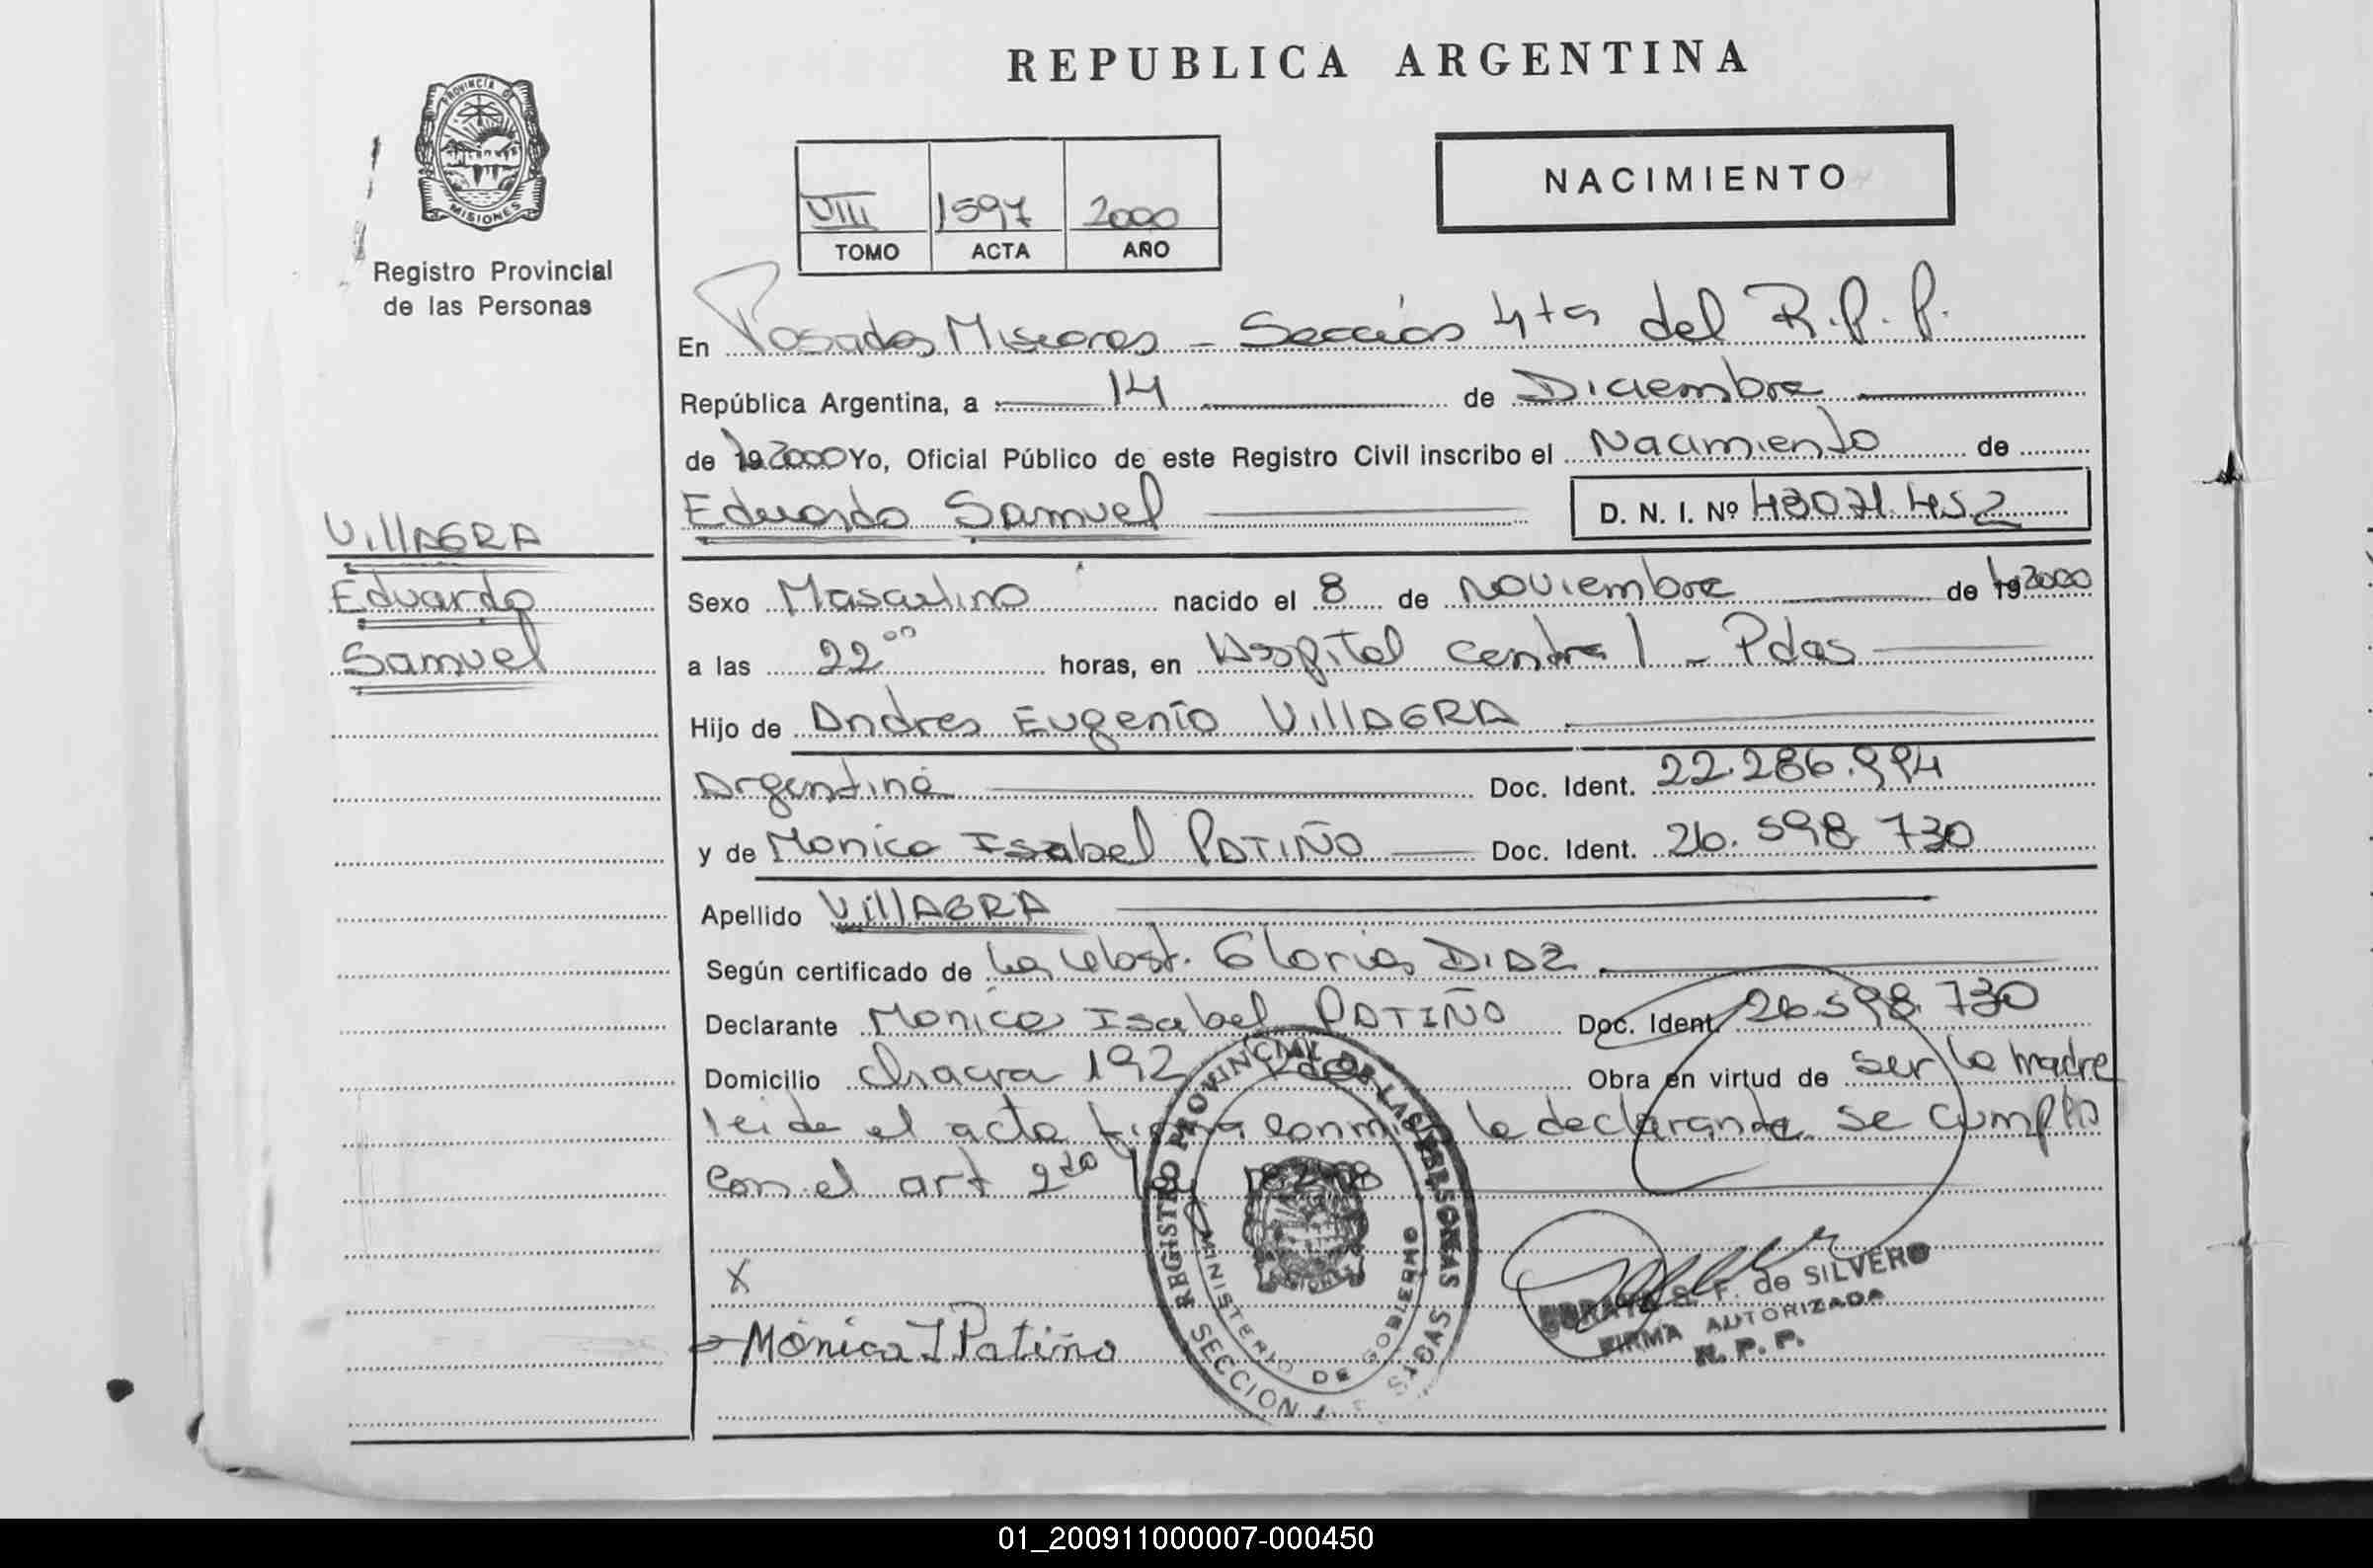 REPUBLICA ARGENTINA
PROVINCIA DE
MISIONES
Registro Provincial
de las Personas
NACIMIENTO
VIII 1597 2000
TOMO ACTA AÑO
En Posadas Misiones - Sección 4ta del R.P.P.
República Argentina, a 14 de Diciembre
de 19 2000 Yo, Oficial Público de este Registro Civil inscribo el Nacimiento de
Eduardo Samuel D. N. I. Nº 43071.452
VillAGRA
Eduardo
Samuel
Sexo Masculino nacido el 8 de Noviembre de 19 2000
a las 22 00 horas, en Hospital Central - Pdas
Hijo de Andres Eugenio VillAGRA
Argentina Doc. Ident. 22.286.994
y de Monica Isabel PATIÑO Doc. Ident. 26.598.730
Apellido VillAGRA
Según certificado de La Obst. Gloria DiAZ
Declarante Monica Isabel PATIÑO Doc. Ident. 26.598.730
Domicilio chacra 192 Pdas Obra en virtud de ser la madre
leida el acta firma conmigo la declarante se cumplio
con el art 2do ley 18248
X
Mónica I Patiño
REGISTRO PROVINCIAL DE LAS PERSONAS
MINISTERIO DE GOBIERNO
SECCION
S. F. de SILVERO
FIRMA AUTORIZADA
R. P. P.
01_200911000007-000450